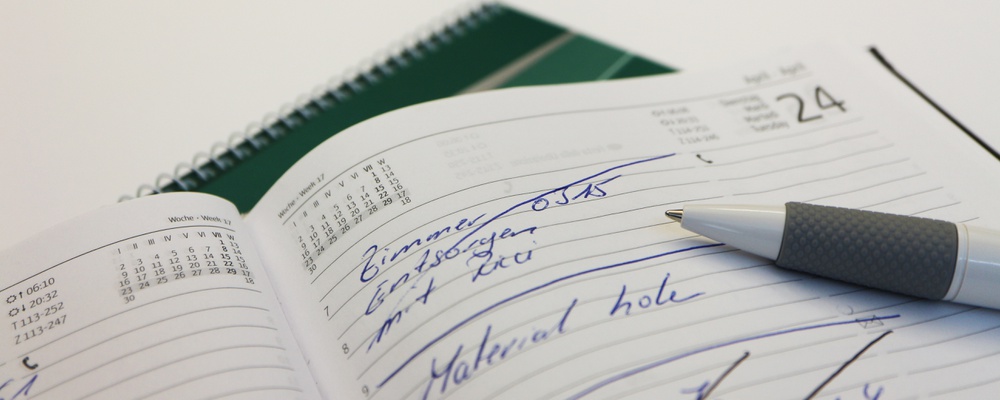 Woche - Week 17
I II III IV V VI VII W
1 13
2 3 4 5 6 7 8 14
9 10 11 12 13 14 15 15
16 17 18 19 20 21 22 16
23 24 25 26 27 28 29 17
30 18
06:10
20:32
T 113-252
Z 113-247
Woche - Week 17
I II III IV V VI VII W
1 13
2 3 4 5 6 7 8 14
9 10 11 12 13 14 15 15
16 17 18 19 20 21 22 16
23 24 25 26 27 28 29 17
30 18
April April
Dienstag
Mardi
Martedì
Tuesday
24
T 114-251
Zimmer 0515
Entsorgen
mit Ricci
7
8
Material hole
9